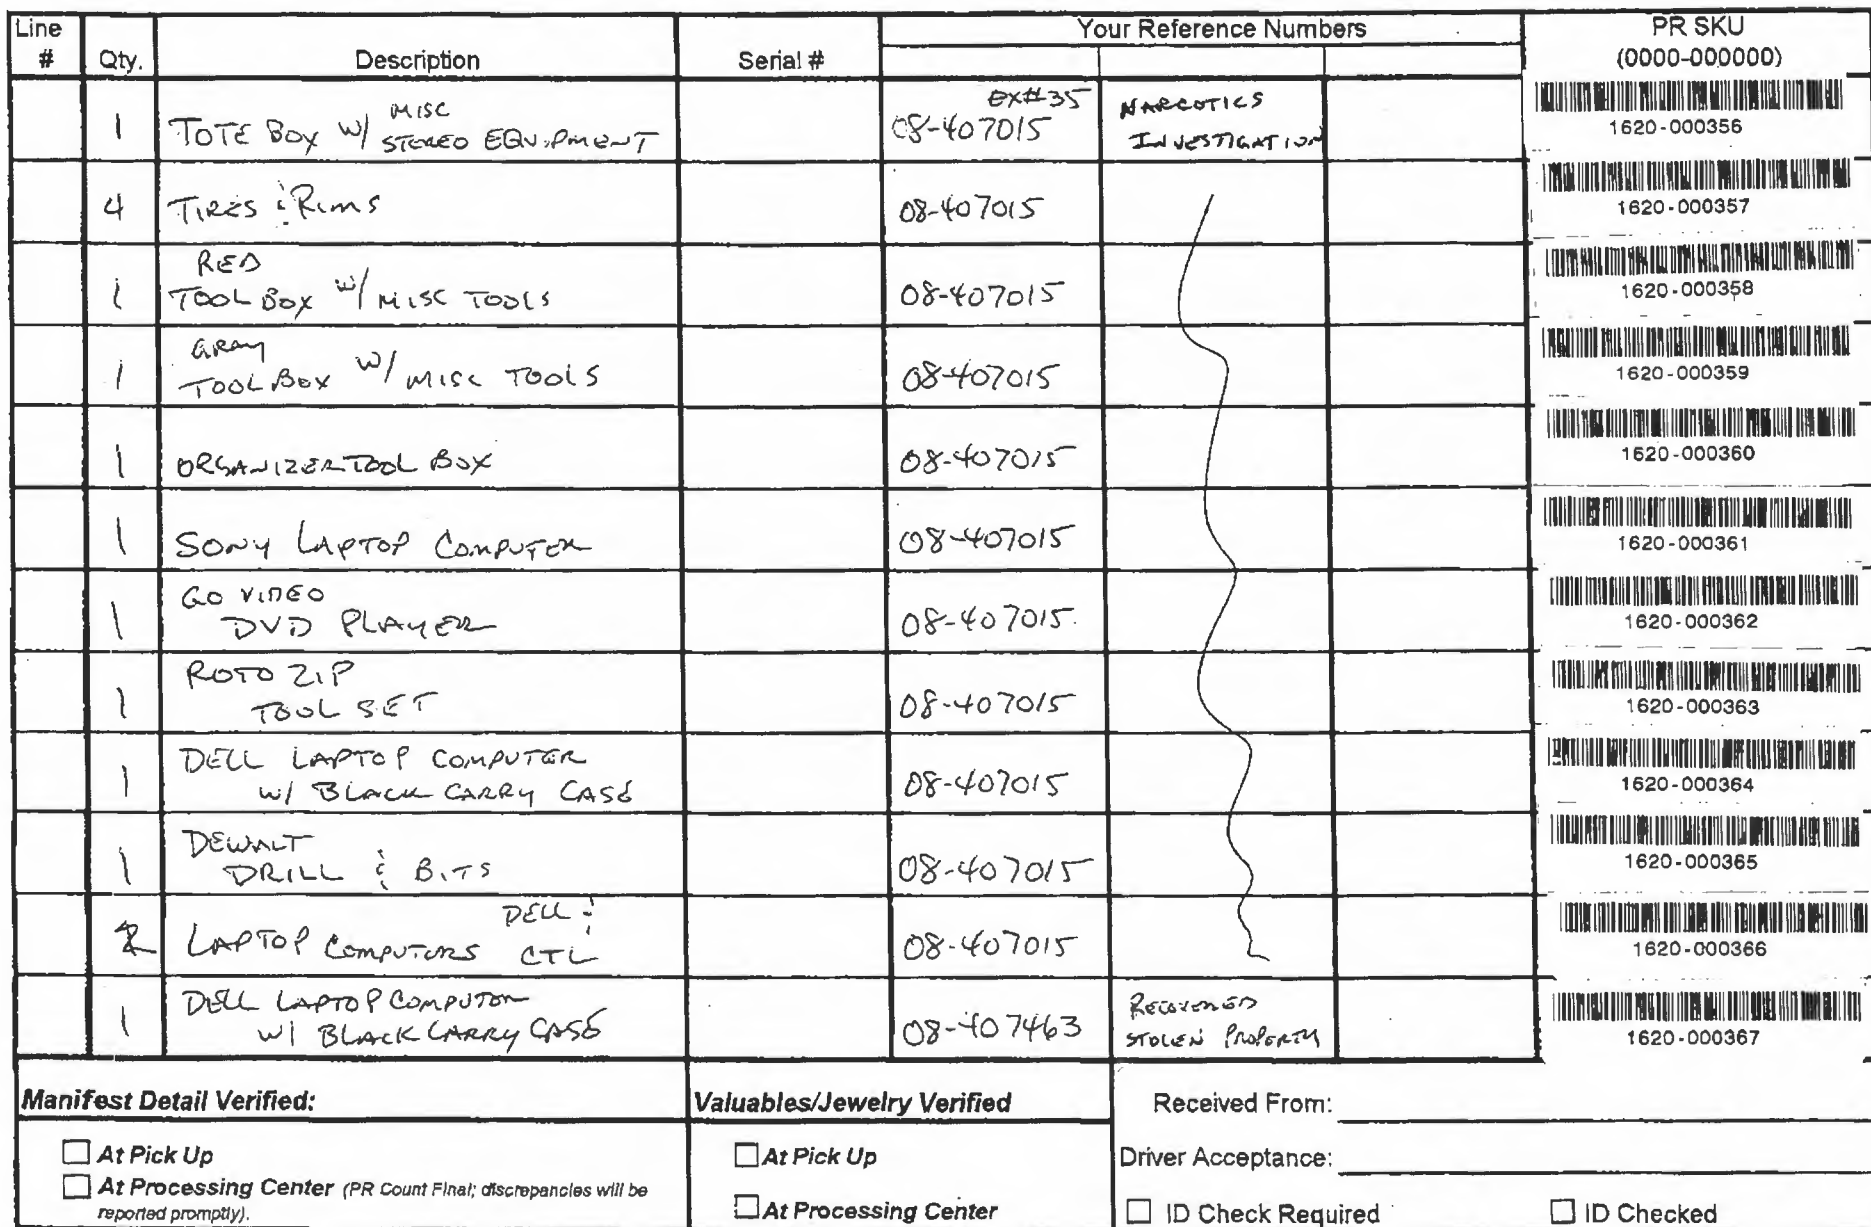 Line # Qty. Description Serial # Your Reference Numbers PR SKU (0000-000000)
1 TOTE BOX W/ MISC STEREO EQUIPMENT 08-407015 EX#35 NARCOTICS INVESTIGATION 1620-000356
4 TIRES & RIMS 08-407015 1620-000357
1 RED TOOL BOX W/ MISC TOOLS 08-407015 1620-000358
1 GRAY TOOL BOX W/ MISC TOOLS 08-407015 1620-000359
1 ORGANIZER TOOL BOX 08-407015 1620-000360
1 SONY LAPTOP COMPUTER 08-407015 1620-000361
1 GO VIDEO DVD PLAYER 08-407015 1620-000362
1 ROTO ZIP TOOL SET 08-407015 1620-000363
1 DELL LAPTOP COMPUTER W/ BLACK CARRY CASE 08-407015 1620-000364
1 DEWALT DRILL & BITS 08-407015 1620-000365
2 LAPTOP COMPUTORS DELL & CTL 08-407015 1620-000366
1 DELL LAPTOP COMPUTOR W/ BLACK CARRY CASE 08-407463 RECOVERED STOLEN PROPERTY 1620-000367
Manifest Detail Verified: Valuables/Jewelry Verified Received From:
At Pick Up At Pick Up Driver Acceptance:
At Processing Center (PR Count Final; discrepancies will be reported promptly). At Processing Center ID Check Required ID Checked